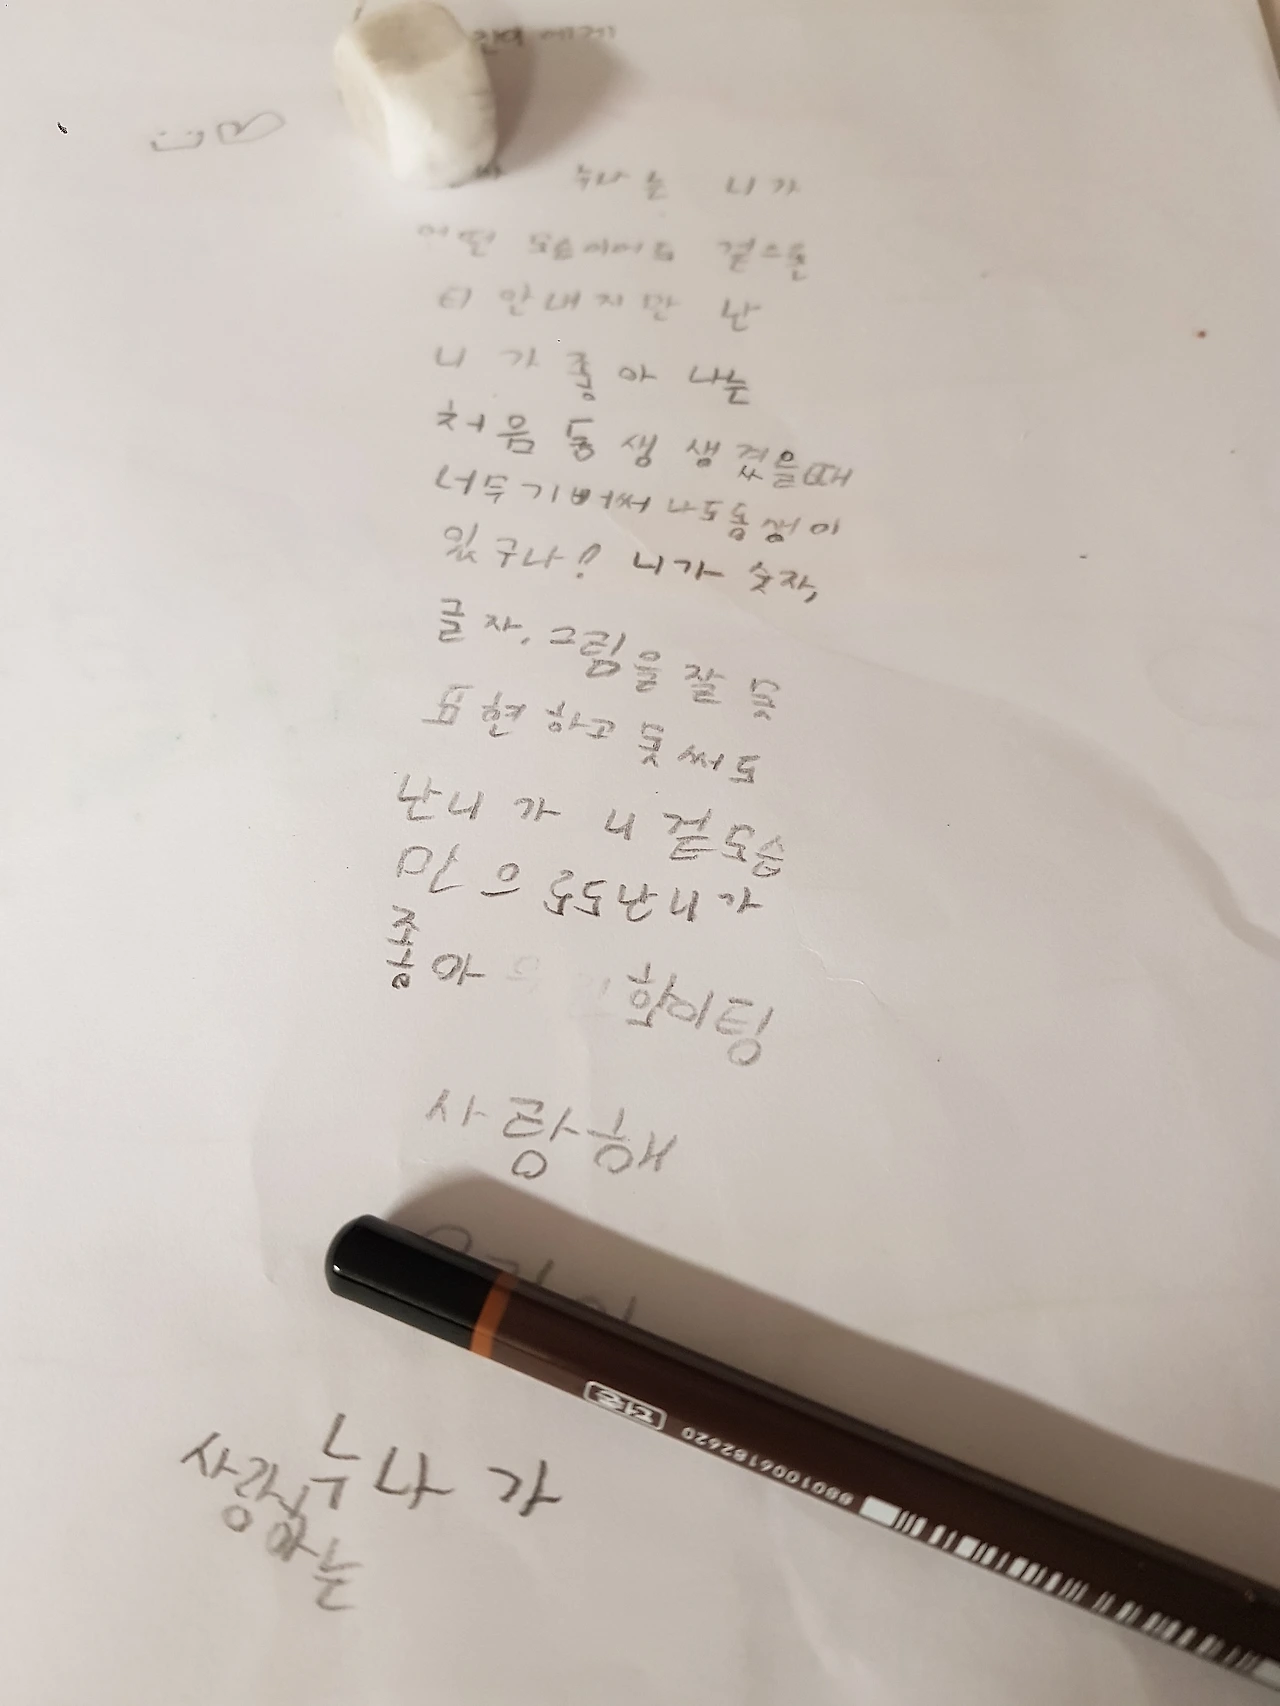 에게
누나는 니가
어떤 모습이어도 겉으론
티 안내지만 난
니가 좋아 나는
처음 동생 생겼을때
너무기뻐써 나도동생이
있구나! 니가 숫자,
글자, 그림을 잘 못
표현하고 못써도
난니가 니 겉모습
만으로도난니가
좋아 화이팅
사랑해
누나가
사랑하는
더존
8801006182620